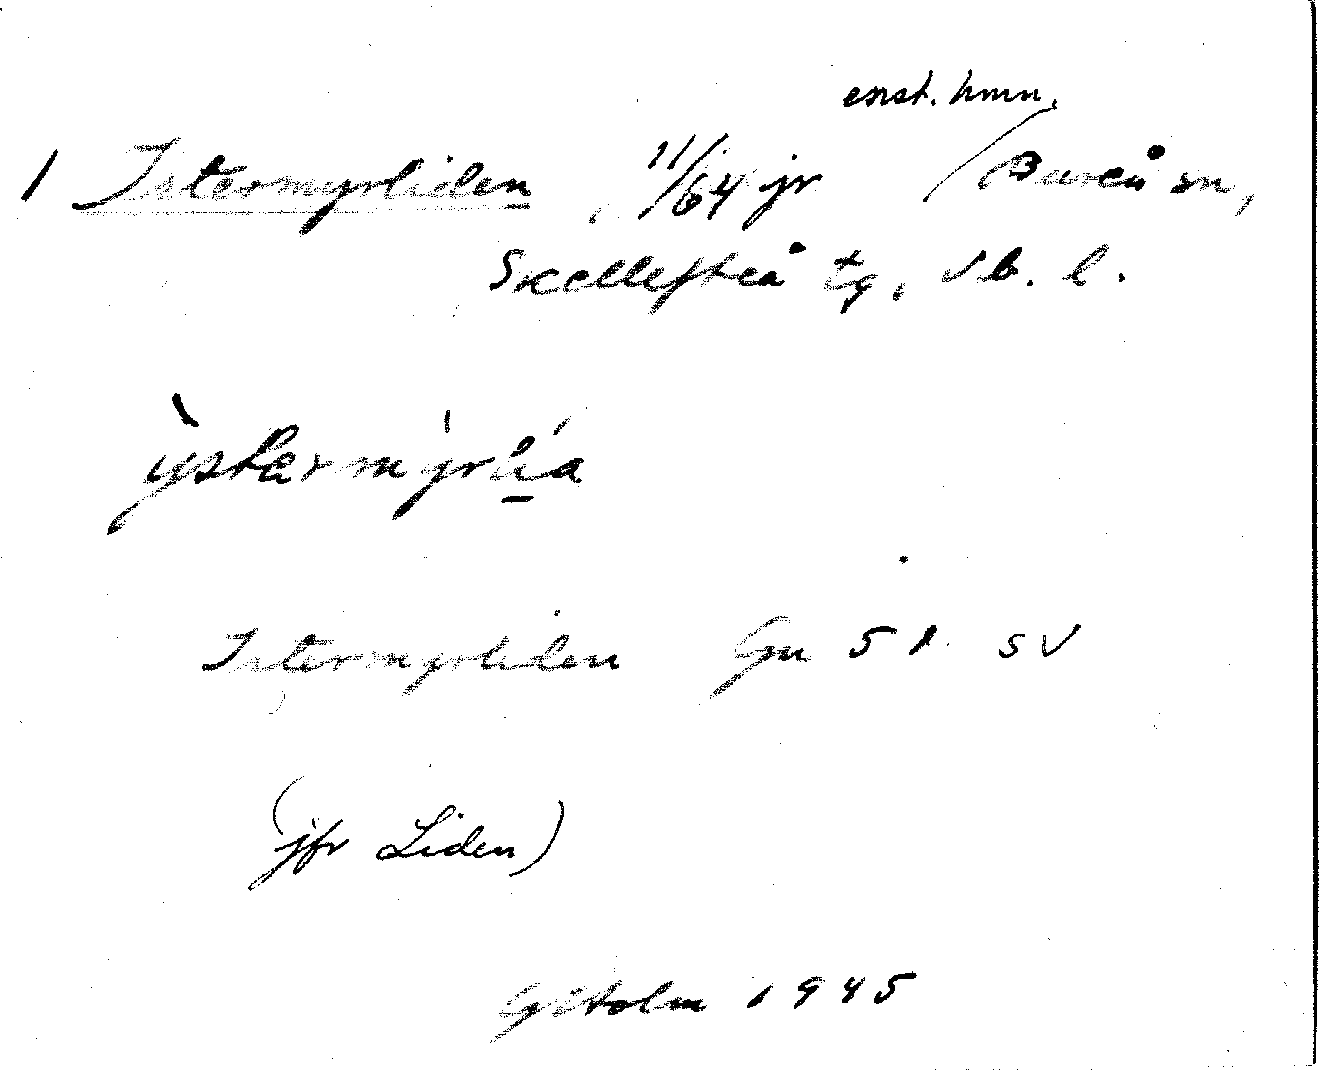 enst. hmn.
1 Istermyrliden, 11/64 jr / Bureå sn,
Skellefteå tg, Vb. l.
Istermyrliden Gn 5 k SV
(jfr Liden)
Giholm 1945